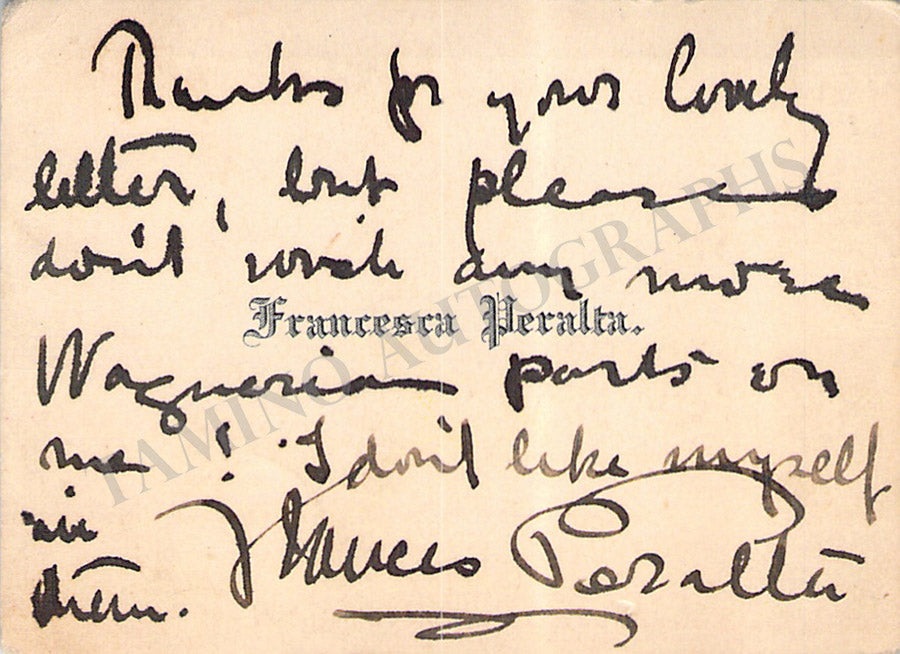 Thanks for your lovely
letter, but please
don't wish any more
Francesca Peralta.
Wagnerian parts on
me! I don't like myself
in
them. Frances Peralta
TAMINO AUTOGRAPHS